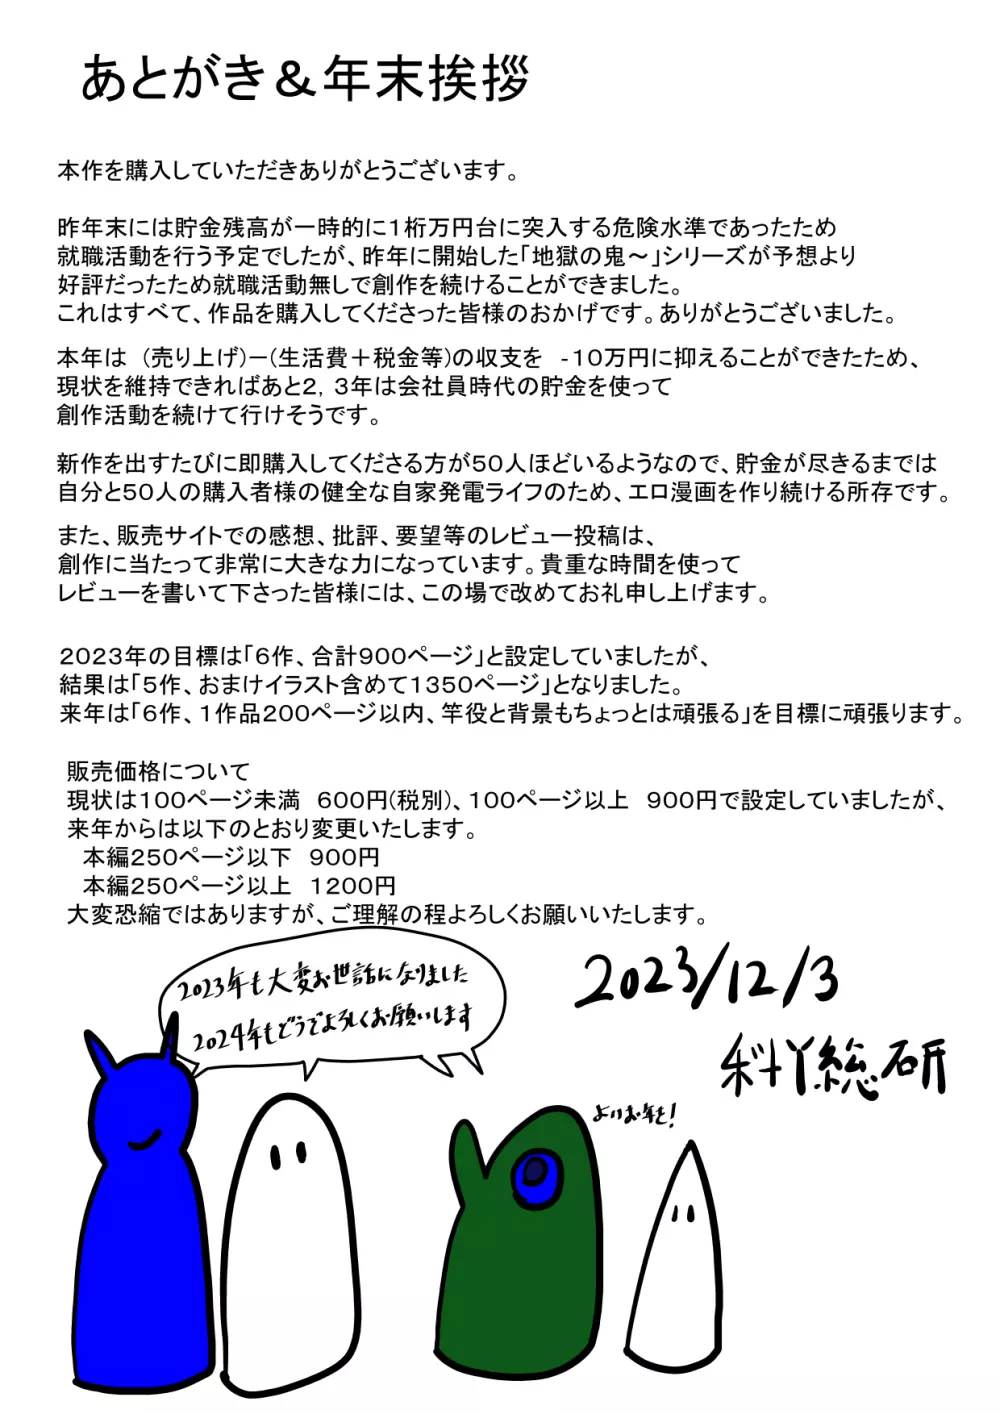 あとがき＆年末挨拶
本作を購入していただきありがとうございます。
昨年末には貯金残高が一時的に１桁万円台に突入する危険水準であったため
就職活動を行う予定でしたが、昨年に開始した「地獄の鬼～」シリーズが予想より
好評だったため就職活動無しで創作を続けることができました。
これはすべて、作品を購入してくださった皆様のおかげです。ありがとうございました。
本年は　(売り上げ)－(生活費＋税金等)の収支を　-１０万円に抑えることができたため、
現状を維持できればあと２，３年は会社員時代の貯金を使って
創作活動を続けて行けそうです。
新作を出すたびに即購入してくださる方が５０人ほどいるようなので、貯金が尽きるまでは
自分と５０人の購入者様の健全な自家発電ライフのため、エロ漫画を作り続ける所存です。
また、販売サイトでの感想、批評、要望等のレビュー投稿は、
創作に当たって非常に大きな力になっています。貴重な時間を使って
レビューを書いて下さった皆様には、この場で改めてお礼申し上げます。
２０２３年の目標は「６作、合計９００ページ」と設定していましたが、
結果は「５作、おまけイラスト含めて１３５０ページ」となりました。
来年は「６作、１作品２００ページ以内、竿役と背景もちょっとは頑張る」を目標に頑張ります。
販売価格について
現状は１００ページ未満　６００円(税別)、１００ページ以上　９００円で設定していましたが、
来年からは以下のとおり変更いたします。
本編２５０ページ以下　９００円
本編２５０ページ以上　１２００円
大変恐縮ではありますが、ご理解の程よろしくお願いいたします。
2023年も大変お世話になりました
2024年もどうぞよろしくお願いします
2023/12/3
料丫総研
よいお年を！